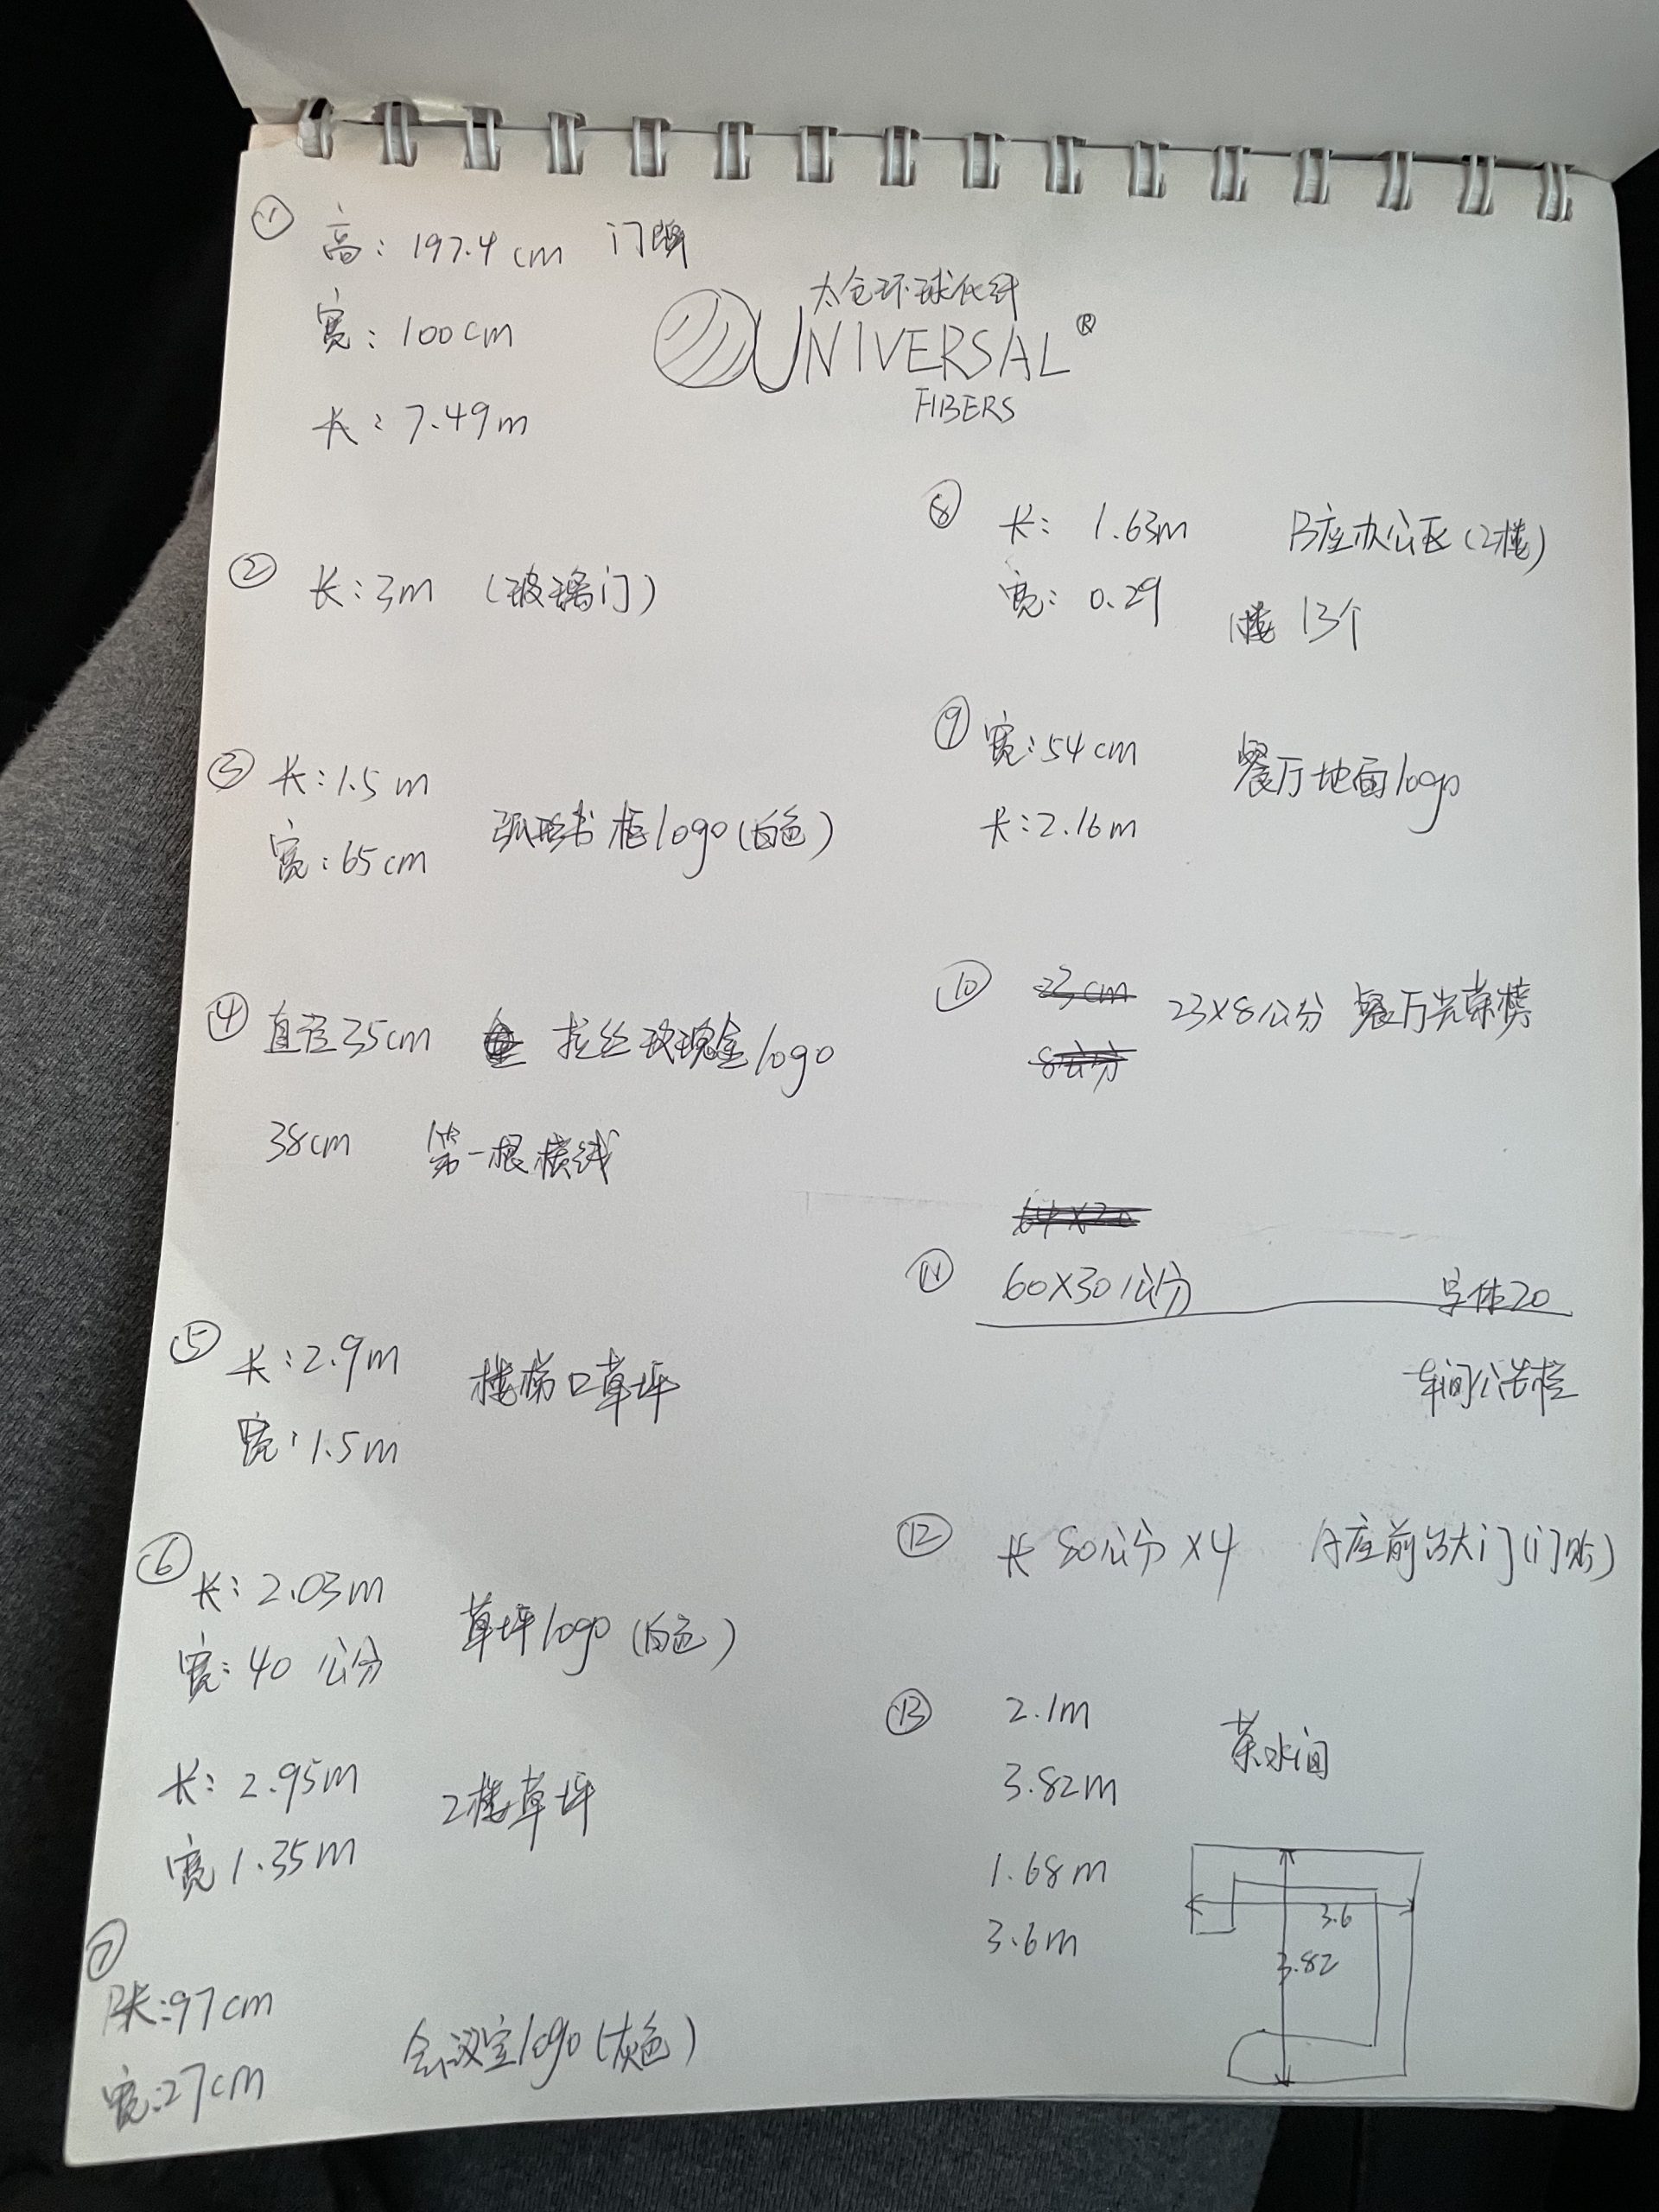 ① 高: 197.4cm 门牌
宽: 100cm
长: 7.49m
太仓环球化纤
UNIVERSAL®
FIBERS
② 长: 3m (玻璃门)
③ 长: 1.5m
宽: 65cm
弧形书柜logo(白色)
④ 直径35cm 拉丝玫瑰金logo
38cm 第一根横线
⑤ 长: 2.9m
宽: 1.5m
楼梯口草坪
⑥ 长: 2.03m
宽: 40公分
草坪logo(白色)
长: 2.95m
宽1.35m
2楼草坪
⑦
长: 97cm
宽: 27cm
会议室logo(灰色)
⑧ 长: 1.63m B座办公区(2楼)
宽: 0.29 1楼 13个
⑨ 宽: 54cm
长: 2.16m
餐厅地面logo
⑩ 23cm 23X8公分 餐厅光荣榜
8公分
64X20
⑪ 60X30公分 字体20
车间公告栏
⑫ 长 80公分X4 A座前台大门(门贴)
⑬ 2.1m
3.82m
茶水间
1.68m
3.6m
3.6
3.82